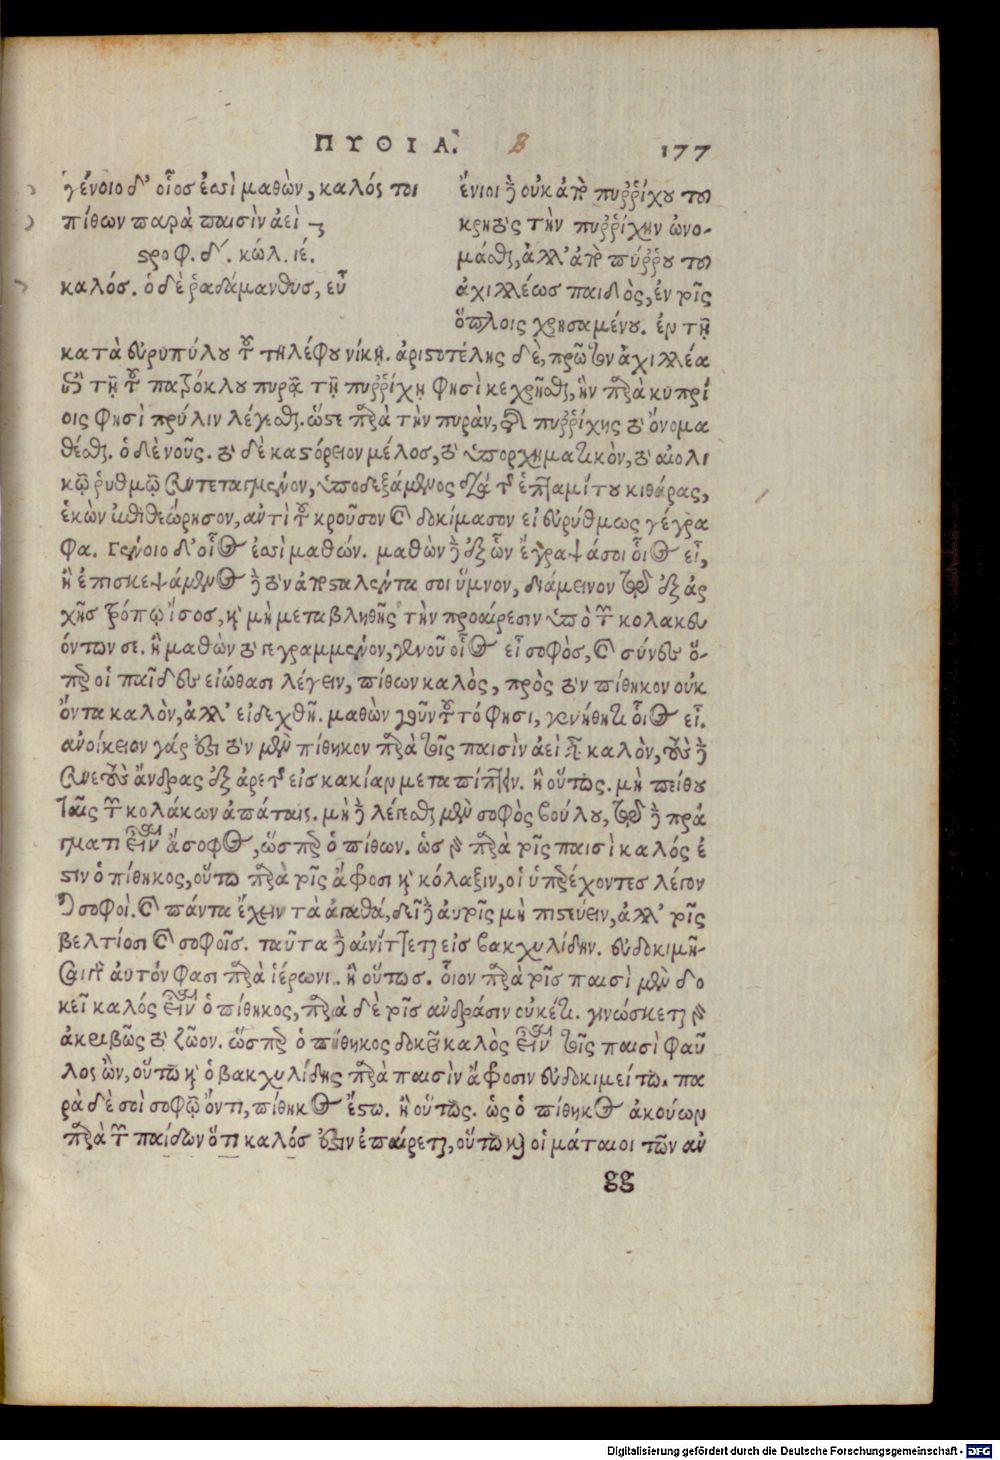 ΠΥΘΙΑ. 8 177
γένοιο δ' οἷος ἐσσὶ μαθὼν, καλός τοι
πίθων παρὰ παισὶν ἀεὶ
στροφ. δ'. κώλ. ιέ.
καλός. ὁ δὲ ῥαδάμανθυς, εὖ
ἔνιοι ἢ οὐκ ἀπὸ πυῤῥίχου τοῦ
κρητὸς τὴν πυῤῥίχην ὠνο-
μάσθαι, ἀλλ' ἀπὸ πύῤῥου τοῦ
ἀχιλλέως παιδὸς, ἐν τοῖς
ὅπλοις χρησαμένου. ἐν τῇ
κατὰ εὐρυπύλου τοῦ τηλέφου νίκῃ. ἀριστοτέλης δὲ, πρῶτον ἀχιλλέα
ἐπὶ τῇ τοῦ πατρόκλου πυρᾷ τῇ πυῤῥίχῃ φησὶ κεχρῆσθαι, ἣν παρὰ κυπρί
οις φησὶ πρύλιν λέγεσθαι. ὥστε παρὰ τὴν πυρὰν, τῆς πυῤῥίχης τὸ ὄνομα
θέσθαι. ὁ δὲ νοῦς. τὸ δὲ καστόρειον μέλος, τὸ ὑπορχηματικὸν, τὸ αἰολι
κῷ ῥυθμῷ συντεταγμένον, ὑποδεξάμενος διὰ τῆς ἑπταμίτου κιθάρας,
ἑκὼν ἐπιθεώρησον, ἀντὶ τοῦ κροῦσον καὶ δοκίμασον εἰ εὐρύθμως γέγρα
φα. Γένοιο δ' οἷος ἐσσὶ μαθών. μαθὼν δὲ ἐξ ὧν ἔγραψά σοι οἷος εἶ,
ἢ ἐπισκεψάμενος δὲ τὸν ἀποσταλέντα σοι ὕμνον, διάμεινον τοῦ ἐξ ἀρ
χῆς τρόπῳ ἴσος, καὶ μὴ μεταβληθῇς τὴν προαίρεσιν ὑπὸ τῶν κολακευ
όντων σε. ἢ μαθὼν τὸ γεγραμμένον, γενοῦ οἷος εἶ σοφὸς, καὶ σύνες ὅ-
περ οἱ παῖδες εἰώθασι λέγειν, πίθων καλὸς, πρὸς τὸν πίθηκον οὐκ
ὄντα καλὸν, ἀλλ' εἰδεχθῆ. μαθὼν γοῦν τοῦτό φησι, γενήθητι οἷος εἶ.
ἀνοίκειον γάρ ἐστι τὸν μὲν πίθηκον παρὰ τοῖς παισὶν ἀεὶ εἶναι καλὸν, τοὺς δὲ
συνετοὺς ἄνδρας ἐξ ἀρετῆς εἰς κακίαν μεταπίπτειν. ἢ οὕτως. μὴ πείθου
ταῖς τῶν κολάκων ἀπάταις. μὴ δὲ λέγεσθαι μὲν σοφὸς βούλου, τοῦ δὲ πρά
γματι εἶναι ἄσοφος, ὥσπερ ὁ πίθων. ὡς γὰρ παρὰ τοῖς παισὶ καλός ἐ
στιν ὁ πίθηκος, οὕτω παρὰ τοῖς ἄφροσι καὶ κόλαξιν, οἱ ὑπερέχοντες λέγον
ται σοφοὶ. καὶ πάντα ἔχειν τὰ ἀγαθά, δεῖ δὲ αὐτοῖς μὴ πιστεύειν, ἀλλὰ τοῖς
βελτίοσι καὶ σοφοῖς. ταῦτα δὲ αἰνίττεται εἰς βακχυλίδην. εὐδοκιμῆ-
σαι γὰρ αὐτόν φασι παρὰ ἱέρωνι. ἢ οὕτως. οἷον παρὰ τοῖς παισὶ μὲν δο
κεῖ καλός εἶναι ὁ πίθηκος, παρὰ δὲ τοῖς ἀνδράσιν οὐκέτι. γινώσκεται γὰρ
ἀκριβῶς τὸ ζῶον. ὥσπερ ὁ πίθηκος δοκεῖ καλὸς εἶναι τοῖς παισὶ φαῦ
λος ὢν, οὕτω καὶ ὁ βακχυλίδης παρὰ παισὶν ἄφροσιν εὐδοκιμείτω. πα
ρὰ δὲ σοὶ σοφῷ ὄντι, πίθηκος ἔστω. ἢ οὕτως. ὡς ὁ πίθηκος ἀκούων
παρὰ τῶν παίδων ὅτι καλός ἐστιν ἐπαίρεται, οὕτω καὶ οἱ μάταιοι τῶν ἀν
gg
Digitalisierung gefördert durch die Deutsche Forschungsgemeinschaft - DFG